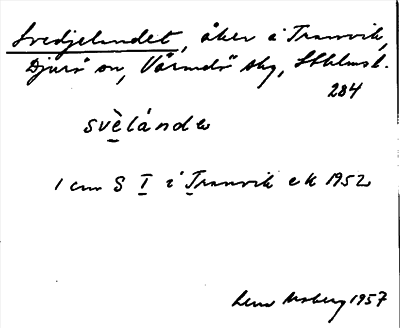 Svedjelandet, åker i Tranvik,
Djurö sn, Värmdö skg, Sthlms l.
284
svèlándə
1 cm S I i Tranvik ek 1952
Lena Moberg 1957